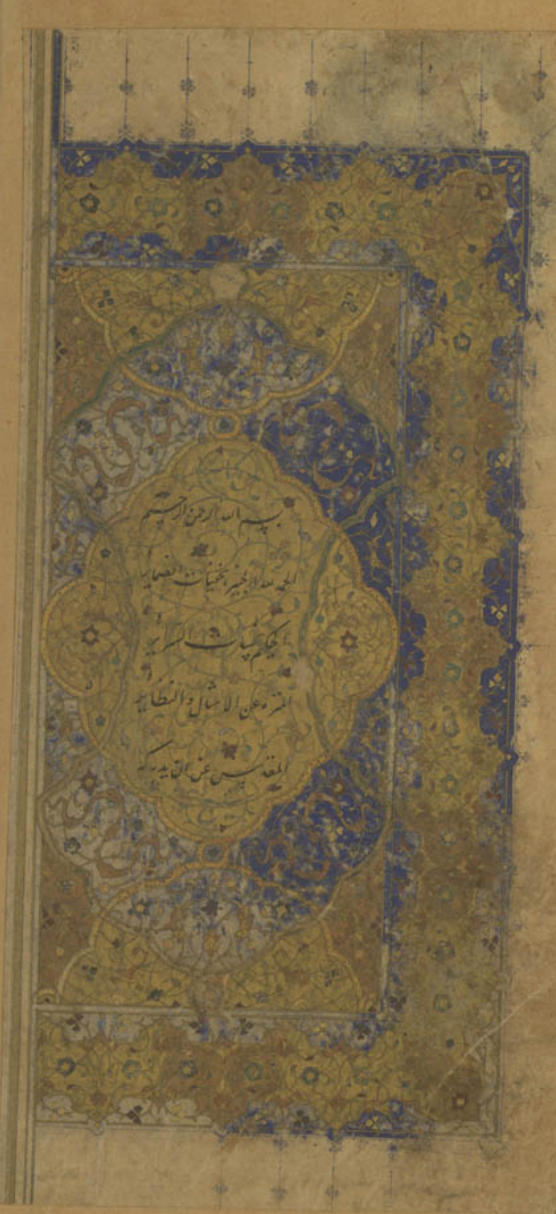 بسم الله الرحمن الرحيم
الحمد لله الخبير بخفيات الضماير
العليم بنيات السراير
المنزه عن الامثال والنظاير
المقدس عن ان يدركه